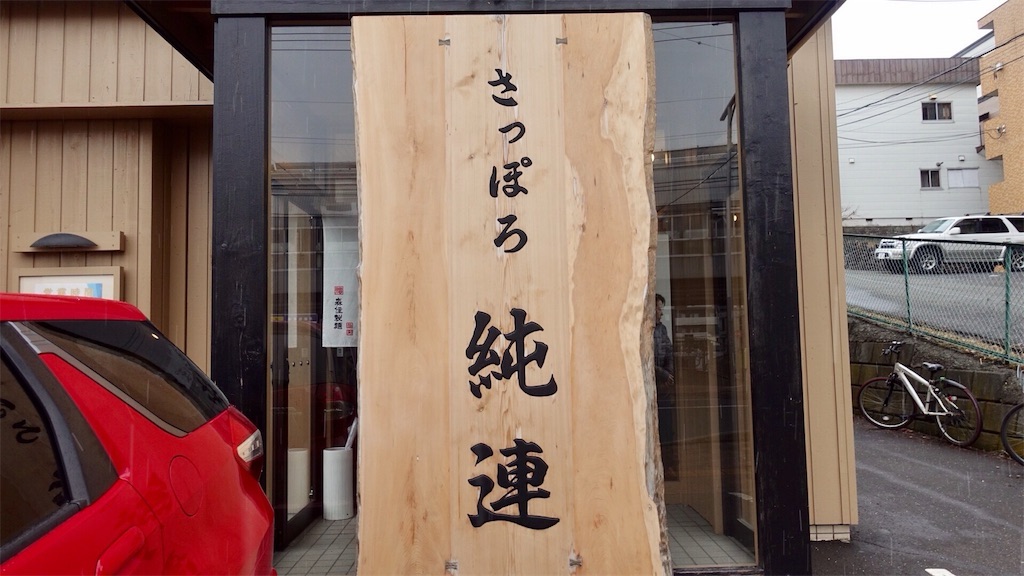 さっぽろ
純連
森住製麺